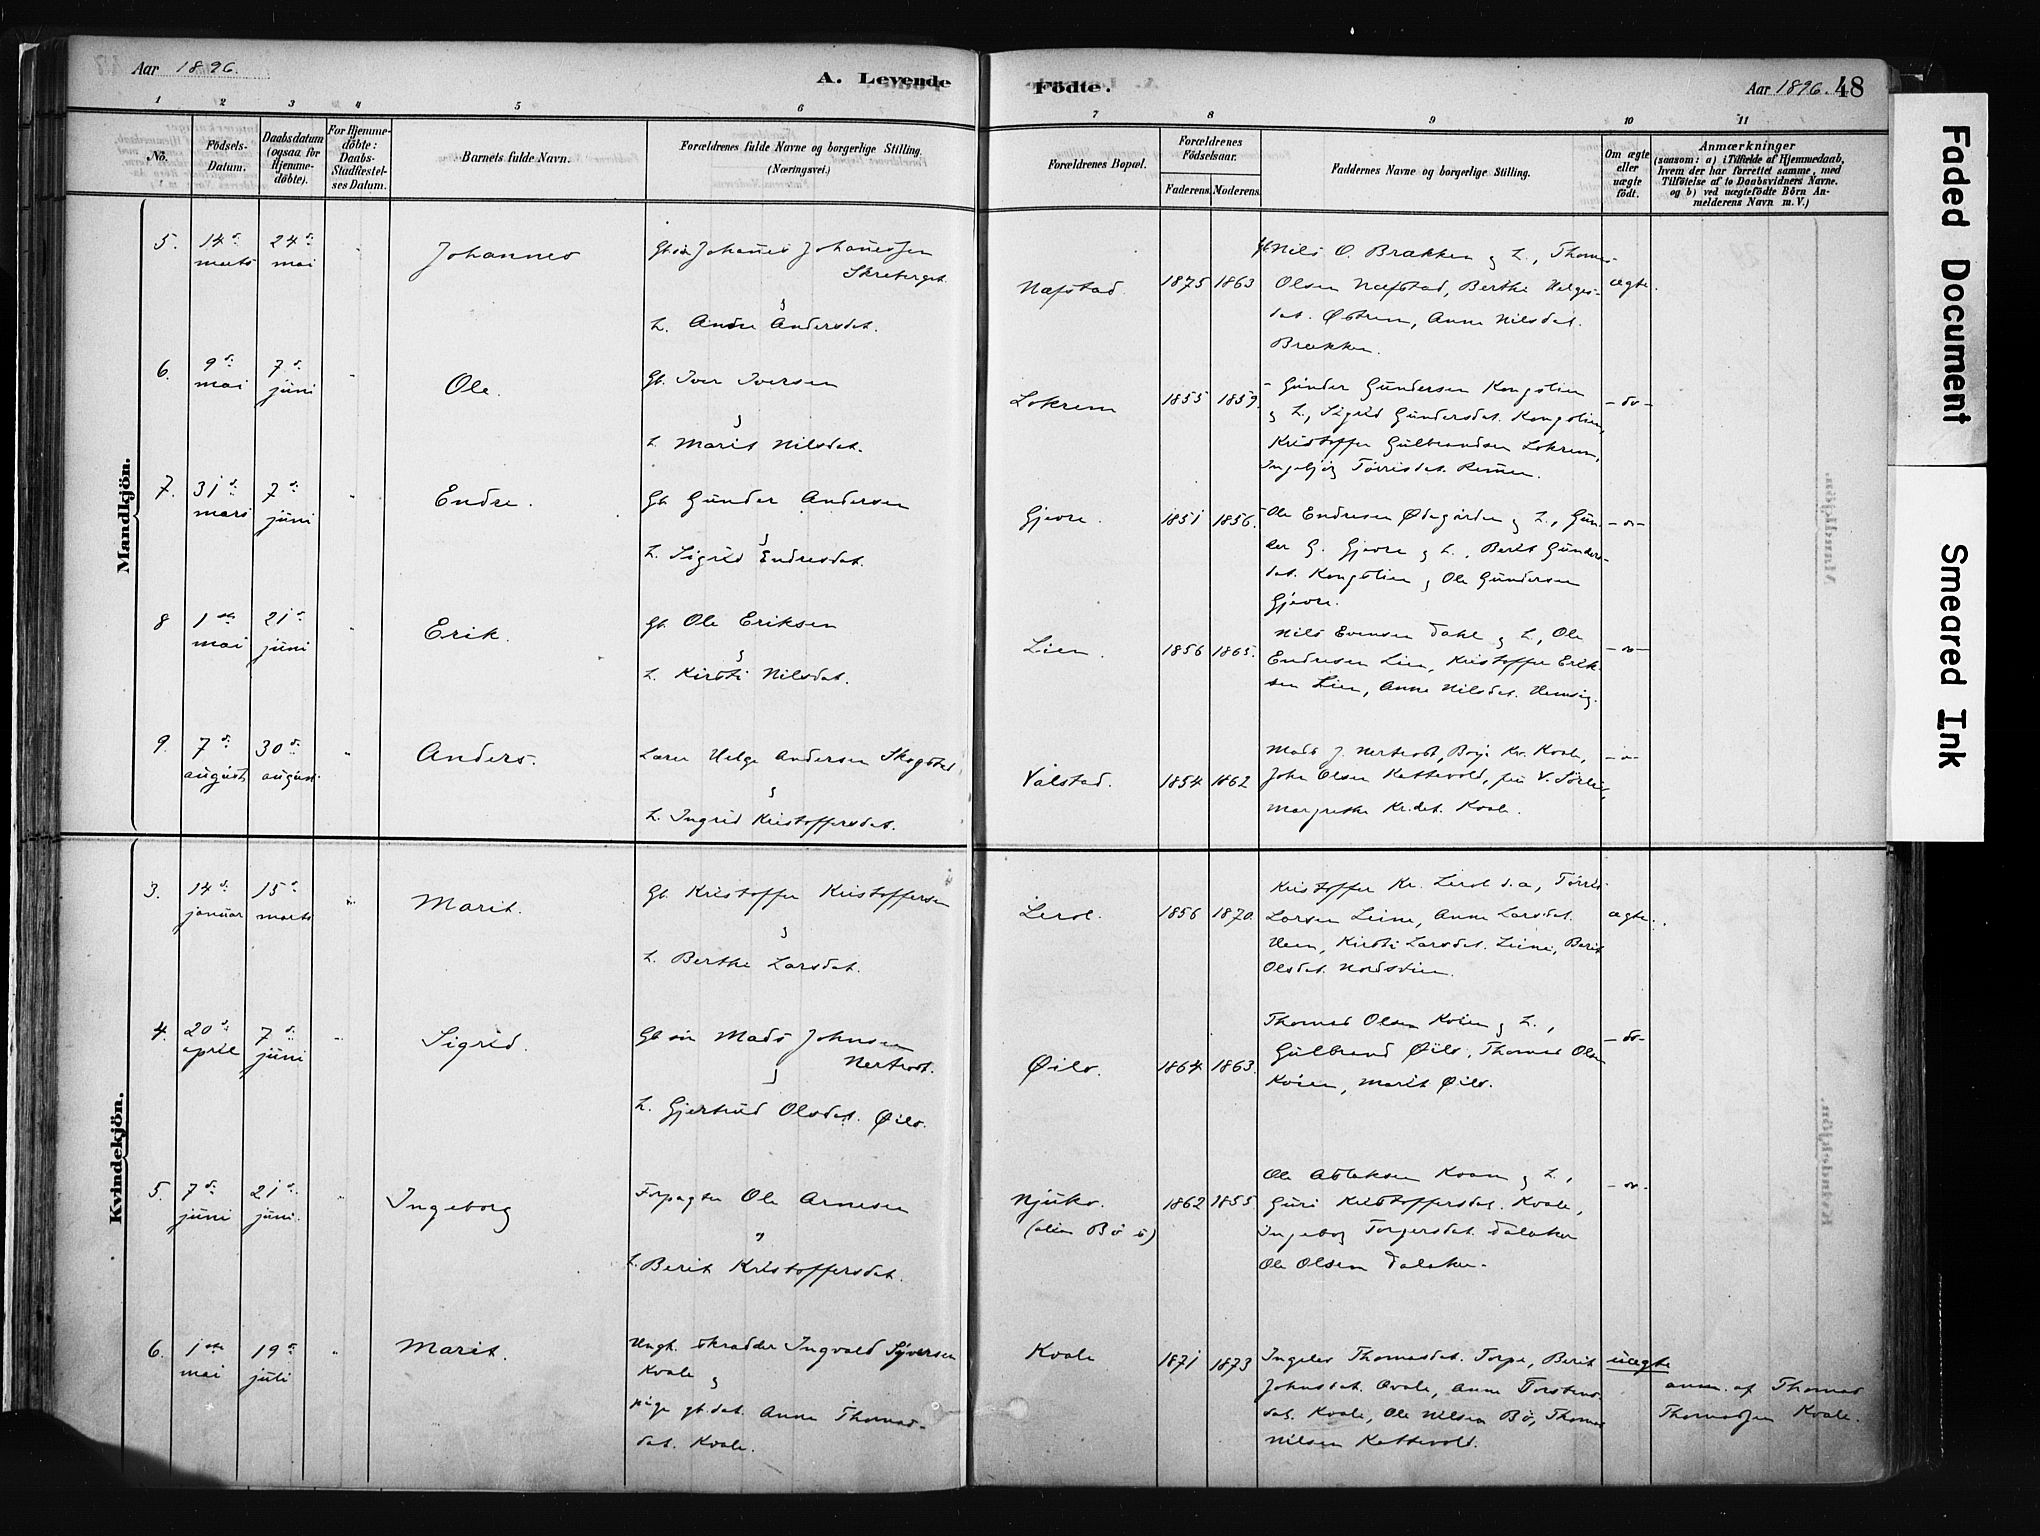 Aar 1896.
A. Levende
Födte.
Aar 1896. 48
1 2 3 4 5 6 7 8 9 10 11
No.
Födsels-
Datum.
Daabsdatum
(ogsaa for
Hjemme-
döbte).
For Hjemme-
döbte:
Daabs-
Stadfæstel-
ses Datum.
Barnets fulde Navn.
Forældrenes fulde Navne og borgerlige Stilling.
(Næringsvei.)
Forældrenes Bopæl.
Forældrenes
Födselsaar.
Faderens. Moderens.
Faddernes Navne og borgerlige Stilling.
Om ægte
eller
uægte
födt.
Anmærkninger
(saasom: a) i Tilfælde af Hjemmedaab,
hvem der har forrettet samme, med
Tilföielse af to Daabsvidners Navne.
og b) ved uægtefödte Börn An-
melderens Navn m. V.)
Mandkjön.
5.
14de
marts
24de
mai
Johannes
Johanes Johanessen
Skreberget
L. Andersdat.
Næfstad
1875 1863
Nils O. Brækken & L., Thomas
Olsen Næfstad, Berthe Helges-
dat. Østrem, Anne Nilsdat.
Brækken.
ægte.
6.
9de
mai
7de
juni
Ole.
Gb. Iver Iversen
&
L. Marit Nilsdat.
Lokrem
1855 1859.
Gunder Gundersen Kongslien
& L., Sigrid Gundersdat. Kongslien,
Kristoffer Gulbrandsen Lokrem,
Ingebjörg Torrisdat.
- do -
7.
31de
mars
7de
juni
Endre.
Gb. Gunder Andersen
&
L. Sigrid Endresdat.
Gjevre.
1851 1856.
Ole Endresen Ødegården & L., Gun-
der G. Gjevre & L., Berit Gunders-
dat. Kongslien & Ole Gundersen
Gjevre.
- " -
8
1ste
mai
21de
juni
Erik.
Gb. Ole Eriksen
&
L. Kirsti Nilsdat.
Lien.
1856 1865.
Nils Evensen Dahl & L., Ole
Endresen Lien, Kristoffer Erik-
sen Lien, Anne Nilsdat. Hemsing.
- " -
9.
7de
august
30de
august
Anders.
Lærer Helge Andersen Skogstad
&
L. Ingrid Kristoffersdat.
Valstad.
1854 1862
Mads J. Nertrost, Kr. Kvale,
John Olsen Kattevold, fru V. Sörlie,
Margrethe Kr.dat. Kvale.
- " -
Kvindekjön.
3.
14de
januar
15de
marts
Marit.
Gb. Kristoffer Kristoffersen
&
L. Berthe Larsdat.
Lerol.
1856 1870.
Kristoffer Kr. Lerol d.a, Torris
Larsen Leine, Anne Larsdat.
Kirsti Larsdat. Leine, Berit
Olsdat. Nordsvien.
ægte.
4.
20de
april
7de
juni
Sigrid.
Mads Johnsen
Nertrost.
&
L. Gjertrud Olsdat. Øilo.
Øilo.
1864 1863.
Thomas Olsen Kvien & L.,
Gulbrand Øilo, Thomas Olsen
Kvien, Marit Øilo.
- do -
5.
7de
juni
21de
juni.
Ingeborg
Forpagter Ole Arnesen
&
L. Berit Kristoffersdat.
Njuko.
1862 1855.
Ole Aslaksen Kvam & L.,
Guri Kristoffersdat. Kvale,
Ingeborg Torgersdat. Dalaker
Ole Olsen Dalaker.
- " -
6.
1ste
mai
19de
juli
Marit.
Ungk. skrædder Ingvald Syversen
Kvale &
pige gb.dat. Anne Thomas-
dat. Kvale.
Kvale
1871 1873
Thomasdat. Torpe, Berit
Johnsdat. Kvale, Anne Torstens-
dat. Kvale, Ole Nilsen Bö, Thomas
Nilsen Kattevold.
uægte
anm. af Thomas
Thomassen Kvale.
Faded Document
Smeared Ink